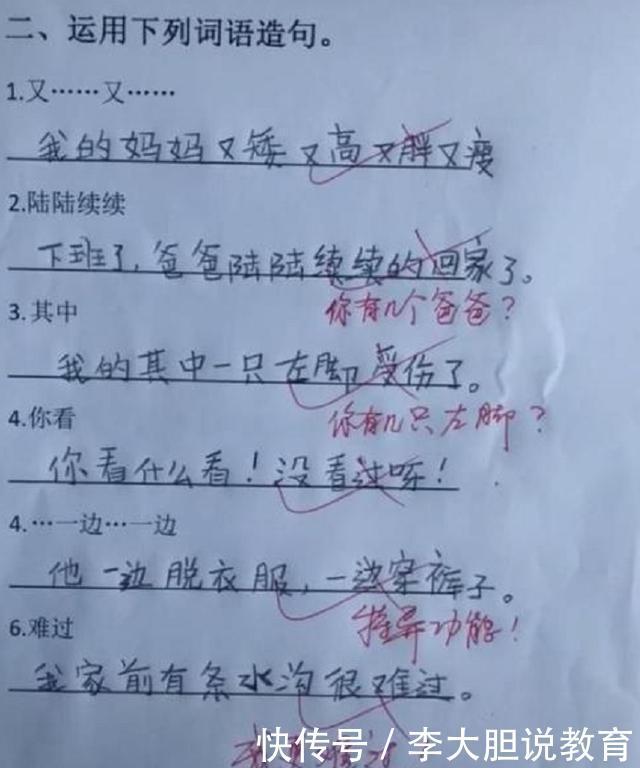 二、运用下列词语造句。
1.又……又……
我的妈妈又矮又高又胖又瘦
2.陆陆续续
下班了,爸爸陆陆续续的回家了。
你有几个爸爸?
3.其中
我的其中一只左脚受伤了。
你有几只左脚?
4.你看
你看什么看!没看过呀!
4.…一边…一边
他一边脱衣服,一边穿裤子。
特异功能!
6.难过
我家前有条水沟很难过。
快传号/李大胆说教育